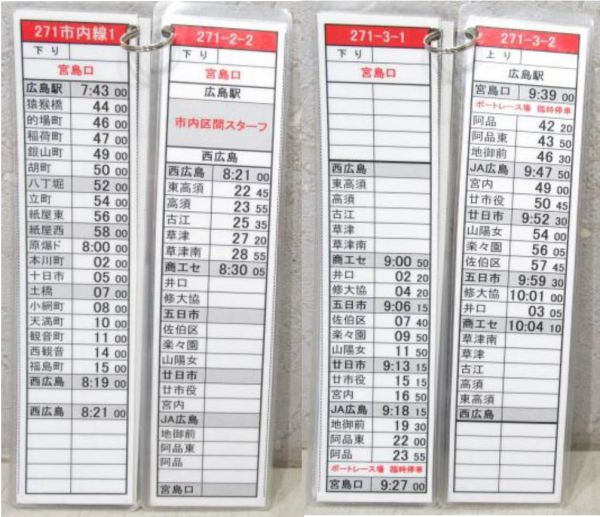 271市内線1
下り
宮島口
広島駅 7:43 00
猿猴橋 44 00
的場町 46 00
稲荷町 47 00
銀山町 49 00
胡町 50 00
八丁堀 52 00
立町 54 00
紙屋東 56 00
紙屋西 58 00
原爆ド 8:00 00
本川町 02 00
十日市 05 00
土橋 07 00
小網町 08 00
天満町 10 00
観音町 11 00
西観音 14 00
福島町 15 00
西広島 8:19 00
西広島 8:21 00
271-2-2
下り
宮島口
広島駅
市内区間スターフ
西広島
西広島 8:21 00
東高須 22 45
高須 23 55
古江 25 35
草津 27 20
草津南 28 55
商工セ 8:30 05
井口
修大協
五日市
佐伯区
楽々園
山陽女
廿日市
廿市役
宮内
JA広島
地御前
阿品東
阿品
宮島口
271-3-1
下り
宮島口
西広島
東高須
高須
古江
草津
草津南
商工セ 9:00 50
井口 02 20
修大協 04 20
五日市 9:06 15
佐伯区 07 40
楽々園 09 50
山陽女 11 50
廿日市 9:13 15
廿市役 15 15
宮内 16 50
JA広島 9:18 15
地御前 19 30
阿品東 22 00
阿品 23 55
ボートレース場 臨時停車
宮島口 9:27 00
271-3-2
上り
広島駅
宮島口 9:39 00
ボートレース場 臨時停車
阿品 42 20
阿品東 43 50
地御前 46 30
JA広島 9:47 50
宮内 49 00
廿市役 50 45
廿日市 9:52 30
山陽女 54 00
楽々園 56 05
佐伯区 57 45
五日市 9:59 30
修大協 10:01 00
井口 03 05
商工セ 10:04 10
草津南
草津
古江
高須
東高須
西広島